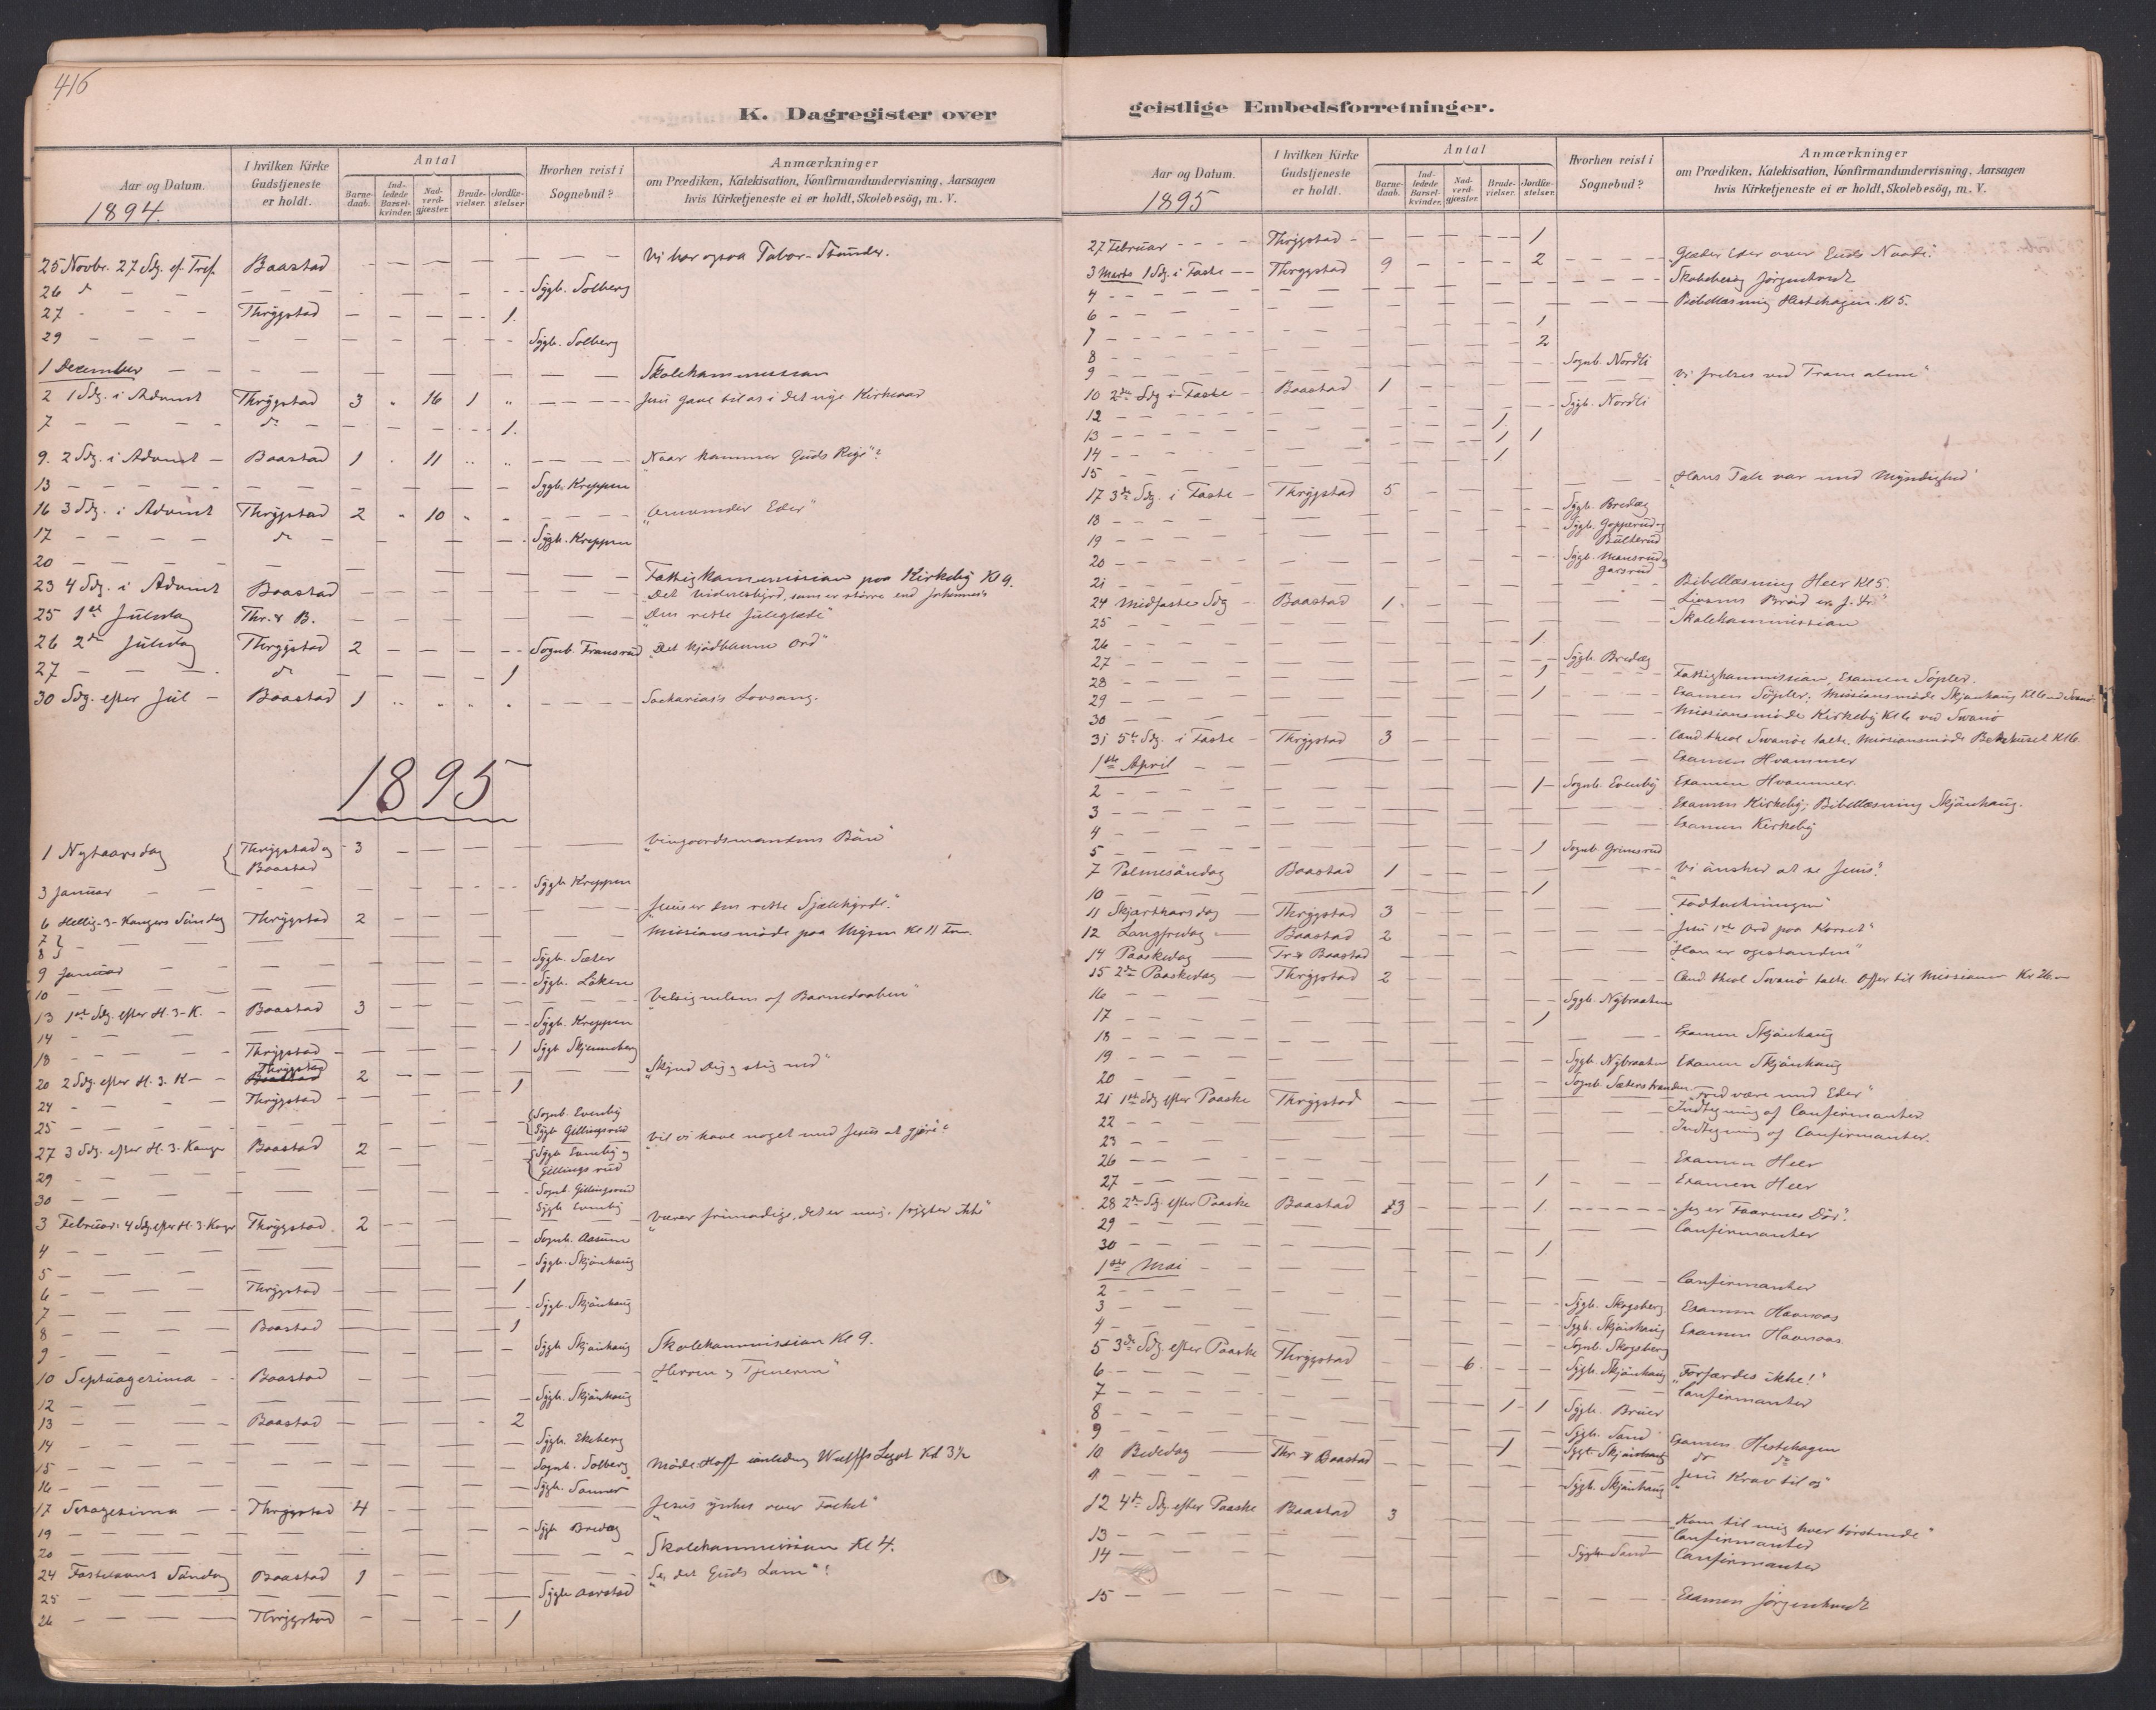 416
K. Dagregister over
Aar og Datum.
1894.
I hvilken Kirke Gudstjeneste er holdt.
Antal
Barne-daab.
Ind-ledede Barsel-kvinder.
Nad-verd-gjæster.
Brude-vielser.
Jordfæ-stelser
Hvorhen reist i Sognebud?
Anmærkninger
om Prædiken, Katekisation, Konfirmandundervisning, Aarsagen hvis Kirketjeneste ei er holdt, Skolebesög, m. V.
25 Novbr. 27 Sdg. ef. Tref. Baastad Vi har ogsaa Tabor-Stunder.
26 Sygb. Solberg
27 Thrygstad 1.
29 Sygb. Solberg
1 December Skolekommission
2 1 Sdg. i Advent Thrygstad 3 " 16 1 " Jesu Gave til os i det nye Kirkeaar
7 do 1.
9. 2 Sdg. i Advent Baastad 1 " 11 " " "Naar kommer Guds Rige"?
13 Sygb. Kreppen
16 3 Sdg. i Advent Thrygstad 2 " 10 " " "Omvender Eder"
17 do Sygb. Kreppen
20 Fattigkommission paa Kirkeby Kl 9.
23 4 Sdg. i Advent Baastad "Det Vidnesbyrd, som er större end Johannes's
25 1ste Juledag Thr. & B. "Den rette Juleglæde"
26 2den Juledag Thrygstad 2 Sognb. Fransrud "Det kjödblevne Ord"
27 do 1
30 Sdg. efter Jul Baastad 1 Sacharias's Lovsang.
1895
1 Nytaarsdag Thrygstad og Baastad 3 "Vingaardsmandens Bön"
3 Januar Sygb Kreppen
6 Hellig-3-Kongers Söndag Thrygstad 2 "Jesus er den rette Sjælehyrde."
7 Missionsmöde paa Mysen Kl 11 Fm.
8 Sygb. Sæter
9 Januar Sygb. Löken
10
13 1ste Sdg. efter H. 3-K. Baastad 3 "Velsignelsen af Barnedaaben"
14 Sygb. Kreppen
18 Thrygstad 1 Sygb Skjenneberg
20 2 Sdg. efter H. 3. K Thrygstad 2 "Skynd Dig & stig ned"
24 Thrygstad 1
25 Sognb. Evenby
Sygb Gillingsrud
27 3 Sdg. efter H. 3. Konger Baastad 2 "Vil vi have noget med Jesus at gjöre"?
29 Sygb Evenby og Gillingsrud
30 Sognb. Gillingsrud
Sygb Evenby
3 Februar: 4 Sdg. efter H. 3. Konger Thrygstad 2 "Værer frimodige, det er mig, frygter ikke"
4 Sognb. Aasum
5 Sygb. Skjönhaug
6 Thrygstad 1
7 Sygb. Skjönhaug
8 Baastad 1
9 Sygb Skjönhaug Skolekommission Kl 9.
10 Septuagesima Baastad "Herren & Tjeneren"
12 Sygb. Skjönhaug
13 Baastad 2
14 Sygb. Ekeberg
15 Sognb. Solberg Möde Hoff Wulffs Legat Kl 3½
16 Sygb. Sanner
17 Sexagesima Thrygstad 4 "Jesus ynkes over Folket"
19 Sygb Bredeg
20 Skolekommission Kl 4.
24 Fastelavns Söndag Baastad 1 "Se, det Guds Lam"!
25 Sygb Aarstad
26 Thrygstad 1
geistlige Embedsforretninger.
Aar og Datum.
1895
I hvilken Kirke Gudstjeneste er holdt.
Antal
Barne-daab.
Ind-ledede Barsel-kvinder.
Nad-verd-gjæster.
Brude-vielser.
Jordfæ-stelser.
Hvorhen reist i Sognebud?
Anmærkninger
om Prædiken, Katekisation, Konfirmandundervisning, Aarsagen hvis Kirketjeneste ei er holdt, Skolebesög, m. V.
27 Februar Thrygstad 1
3 Marts 1 Sdg. i Faste Thrygstad 9 2 Glæder Eder over Guds Naade.
4 Skolebesög Jörgentvedt
6 Bibellæsning Hestehagen Kl 5.
7 1
8 2
9 Sognb. Nordli
10 2den Sdg i Faste Baastad 1 "Vi frelses ved Troen alene"
12 Sygb. Nordli
13 1
14 1 1
15 1
17 3de Sdg. i Faste Thrygstad 5 "Hans Tale var med Myndighed"
18 Sygb. Bredeg
19 Sygb. Gopperud og Bulterud
20 Sygb. Monsrud & Garsrud
21 Bibellæsning Heer Kl 5.
24 Midfaste Sdg Baastad 1 "Livsens Bröd er J. Kr."
25 Skolekommission
26 1
27 Sygb. Bredeg
28 1 Fattigkommission, Examen Söpler.
29 1 Examen Söpler; Missionsmöde Skjönhaug Kl 6 ved Svanö.
30 Missionsmöde Kirkeby Kl 6 ved Svanö
31 5te Sdg. i Faste Thrygstad 3 Cand theol Svanöe talte. Missionsmöde Bedehuset Kl 6.
1ste April Examen Hvammer
2 1 Sognb. Evenby Examen Hvammer.
3 Examen Kirkeby; Bibellæsning Skjönhaug.
4 Examen Kirkeby
5 1 Sognb. Grimsrud
7 Palmesöndag Baastad 1 "Vi önsker at se Jesus".
10 1
11 Skjærthorsdag Thrygstad 3 "Fodtvætningen"
12 Langfredag Baastad 2 Jesu 1ste Ord paa Korset"
14 Paaskedag Tr & Baastad "Han er opstanden"
15 2den Paaskedag Thrygstad 2 Cand theol Svanö talte. Offer til Missionen Kr 26
16 Sygb. Nybraaten
17 1
18 Examen Skjönhaug
19 Sygb Nybraaten Examen Skjönhaug
20 Sognb. Sæterstranden
21 1ste Sdg efter Paaske Thrygstad "Fred være med Eder"
22 Indtegning af Confirmanter
23 Indtegning af Confirmanter.
26 Examen Heer
27 1 Examen Heer
28 2den Sdg. efter Paaske Baastad 3 1 "Jeg er Faarenes Dör".
29 Confirmanter
30 1
1ste Mai
2 Confirmanter
3 Sygb. Skogsberg Examen Haavaas
4 Sygb. Skjönhaug Examen Haavaas.
Sognb. Skogsberg
5 3de Sdg. efter Paaske Thrygstad 6 Sygb. Skjönhaug "Forfærdes ikke!"
6 Confirmanter
7
8 1 1 Sygb. Bruer
9 Sygb. Sand Examen Hestehagen
10 Bededag Thr & Baastad 1 Sygb Skjönhaug do do
11 Sygb. Skjönhaug "Jesu Krav til os"
12 4de Sdg. efter Paaske Baastad 3
"Kom til mig hver törstende"
13 Confirmanter
14 Sygb Sand Confirmanter
15 Examen Jörgentvedt